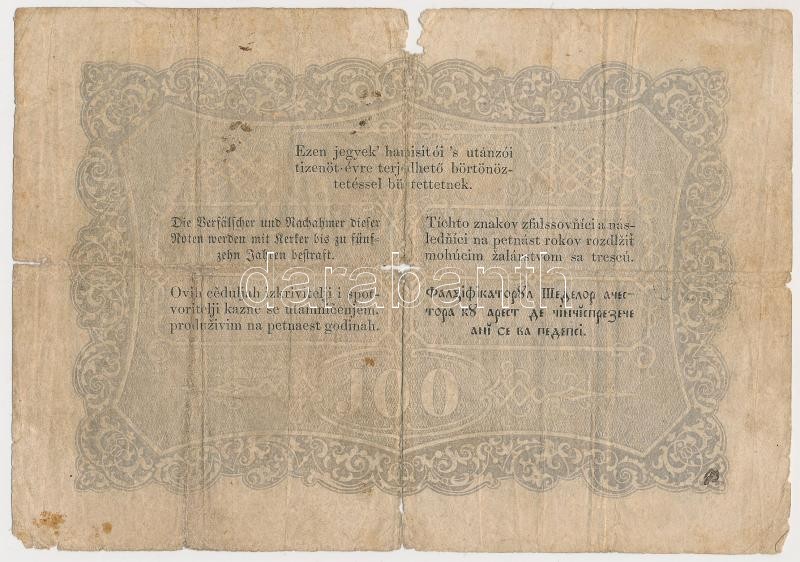 Ezen jegyek' hamisitói 's utánzói
tizenöt-évre terjedhető börtönöz-
tetéssel bü tettetnek.
Die Verfälscher und Nachahmer dieser
Noten werden mit Kerker bis zu fünf-
zehn Jahren bestraft.
Tichto znakov zfalssovňíci a nás-
ledňíci na petnást rokov rozdlžiť
mohúcim žalárstvom sa trescú.
Ovih cĕduljah izkrivitelji i spot-
voritelji kazne se utamničenjem,
produživim na petnaest godinah.
Фалзіфікаторꙋл Шеделор ачес-
тора кꙋ арест де чінчіспрезече
ані се ва педепсі.
darabanth
100